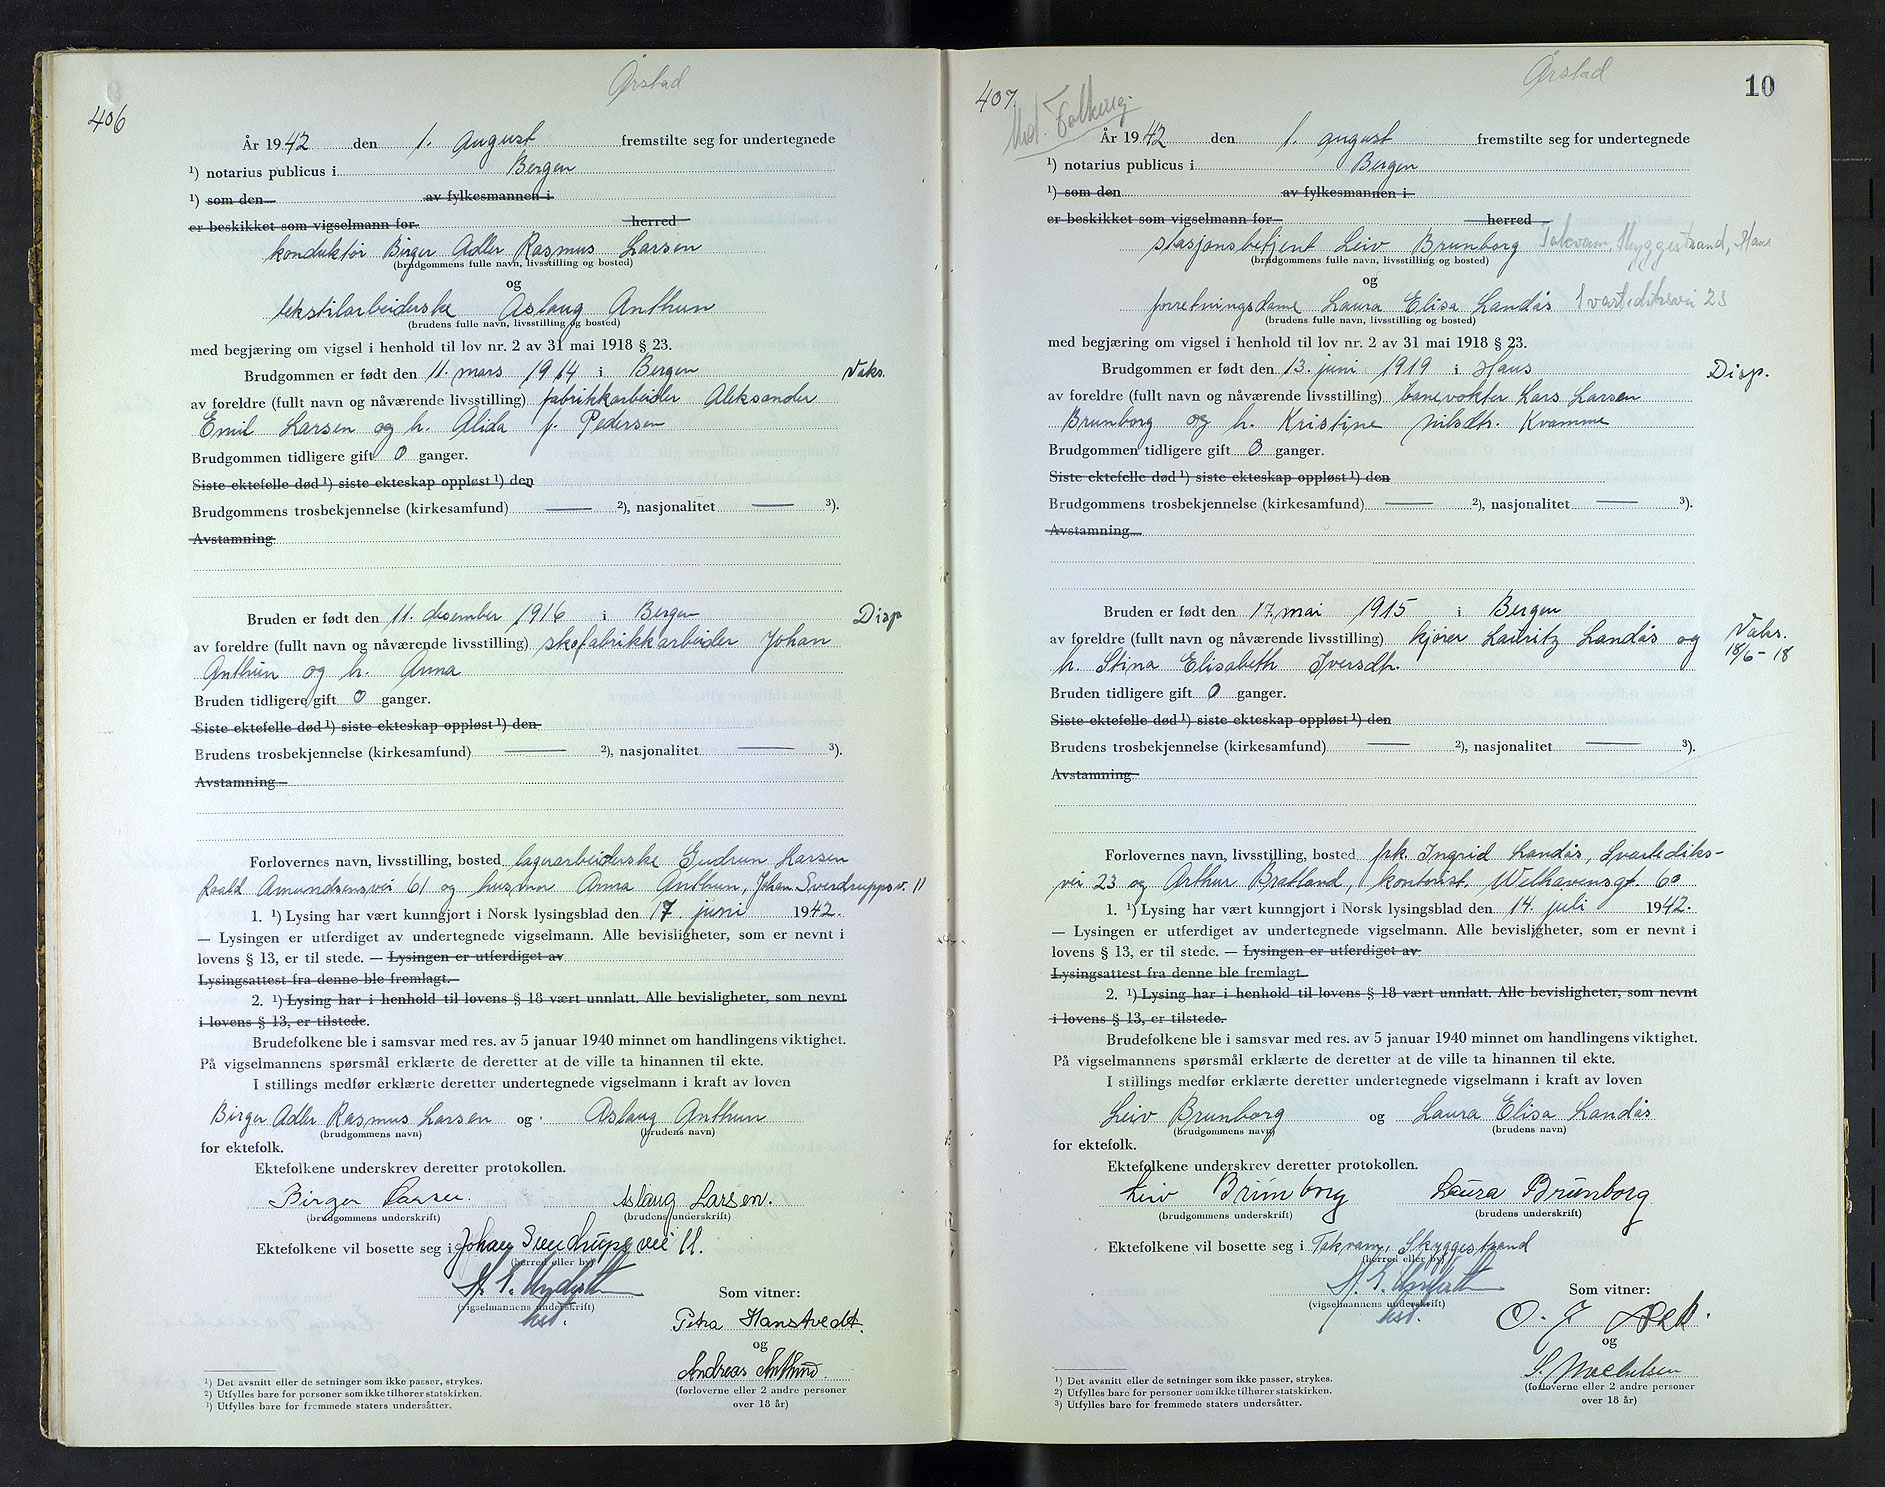 Årstad
406
År 1942 den 1. august fremstilte seg for undertegnede
¹) notarius publicus i Bergen
¹) som den av fylkesmannen i
er beskikket som vigselmann for herred
konduktør Birger Adler Rasmus Larsen
(brudgommens fulle navn, livsstilling og bosted)
og
tekstilarbeiderske Aslaug Anthun
(brudens fulle navn, livsstilling og bosted)
med begjæring om vigsel i henhold til lov nr. 2 av 31 mai 1918 § 23.
Brudgommen er født den 11. mars 1914 i Bergen Vaks.
av foreldre (fullt navn og nåværende livsstilling) fabrikkarbeider Aleksander
Emil Larsen og h. Alida f. Pedersen
Brudgommen tidligere gift 0 ganger.
Siste ektefelle død ¹) siste ekteskap oppløst ¹) den
Brudgommens trosbekjennelse (kirkesamfund) — ²), nasjonalitet — ³).
Avstamning
Bruden er født den 11. desember 1916 i Bergen Disp
av foreldre (fullt navn og nåværende livsstilling) skofabrikkarbeider Johan
Anthun og h. Anna
Bruden tidligere gift 0 ganger.
Siste ektefelle død ¹) siste ekteskap oppløst ¹) den
Brudens trosbekjennelse (kirkesamfund) — ²), nasjonalitet — ³).
Avstamning
Forlovernes navn, livsstilling, bosted lagerarbeiderske Gudrun Larsen
Roald Amundsensvei 61 og husmor Anna Anthun, Johan Sverdruppsv. 11
1. ¹) Lysing har vært kunngjort i Norsk lysingsblad den 17. juni 1942.
— Lysingen er utferdiget av undertegnede vigselmann. Alle bevisligheter, som er nevnt i
lovens § 13, er til stede. — Lysingen er utferdiget av
Lysingsattest fra denne ble fremlagt.
2. ¹) Lysing har i henhold til lovens § 18 vært unnlatt. Alle bevisligheter, som nevnt
i lovens § 13, er tilstede.
Brudefolkene ble i samsvar med res. av 5 januar 1940 minnet om handlingens viktighet.
På vigselmannens spørsmål erklærte de deretter at de ville ta hinannen til ekte.
I stillings medfør erklærte deretter undertegnede vigselmann i kraft av loven
Birger Adler Rasmus Larsen og Aslaug Anthun
(brudgommens navn) (brudens navn)
for ektefolk.
Ektefolkene underskrev deretter protokollen.
Birger Larsen. Aslaug Larsen.
(brudgommens underskrift) (brudens underskrift)
Ektefolkene vil bosette seg i Johan Sverdrups vei 11.
(herred eller by)
(vigselmannens underskrift) Som vitner:
kst. Petra Hanstvedt.
og
Andreas Anthun.
(forloverne eller 2 andre personer
over 18 år)
¹) Det avsnitt eller de setninger som ikke passer, strykes.
²) Utfylles bare for personer som ikke tilhører statskirken.
³) Utfylles bare for fremmede staters undersåtter.
Årstad
10
407.
År 1942 den 1. august fremstilte seg for undertegnede
¹) notarius publicus i Bergen
¹) som den av fylkesmannen i
er beskikket som vigselmann for herred
stasjonsbetjent Leiv Brunborg Takvam, Skyggestrand, Haus
(brudgommens fulle navn, livsstilling og bosted)
og
forretningsdame Laura Elisa Landås Svartediksvei 23
(brudens fulle navn, livsstilling og bosted)
med begjæring om vigsel i henhold til lov nr. 2 av 31 mai 1918 § 23.
Brudgommen er født den 13. juni 1919 i Haus Disp.
av foreldre (fullt navn og nåværende livsstilling) banevokter Lars Larsen
Brunborg og h. Kristine Nilsdtr. Kvamme
Brudgommen tidligere gift 0 ganger.
Siste ektefelle død ¹) siste ekteskap oppløst ¹) den
Brudgommens trosbekjennelse (kirkesamfund) — ²), nasjonalitet — ³).
Avstamning
Bruden er født den 17. mai 1915 i Bergen
av foreldre (fullt navn og nåværende livsstilling) kjører Lauritz Landås og Vaks.
h. Stina Elisabeth Iversdtr. 18/6-18
Bruden tidligere gift 0 ganger.
Siste ektefelle død ¹) siste ekteskap oppløst ¹) den
Brudens trosbekjennelse (kirkesamfund) — ²), nasjonalitet — ³).
Avstamning
Forlovernes navn, livsstilling, bosted frk. Ingrid Landås, Svartediks-
vei 23 og Arthur Bratland, kontorist, Welhavensgt. 60
1. ¹) Lysing har vært kunngjort i Norsk lysingsblad den 14. juli 1942.
— Lysingen er utferdiget av undertegnede vigselmann. Alle bevisligheter, som er nevnt i
lovens § 13, er til stede. — Lysingen er utferdiget av
Lysingsattest fra denne ble fremlagt
2. ¹) Lysing har i henhold til lovens § 18 vært unnlatt. Alle bevisligheter, som nevnt
i lovens § 13, er tilstede.
Brudefolkene ble i samsvar med res. av 5 januar 1940 minnet om handlingens viktighet.
På vigselmannens spørsmål erklærte de deretter at de ville ta hinannen til ekte.
I stillings medfør erklærte deretter undertegnede vigselmann i kraft av loven
Leiv Brunborg og Laura Elisa Landås
(brudgommens navn) (brudens navn)
for ektefolk.
Ektefolkene underskrev deretter protokollen.
Leiv Brunborg Laura Brunborg
(brudgommens underskrift) (brudens underskrift)
Ektefolkene vil bosette seg i Takvam, Skyggestrand
(herred eller by)
(vigselmannens underskrift) Som vitner:
kst. O. J.
og
S.
(forloverne eller 2 andre personer
over 18 år)
¹) Det avsnitt eller de setninger som ikke passer, strykes.
²) Utfylles bare for personer som ikke tilhører statskirken.
³) Utfylles bare for fremmede staters undersåtter.